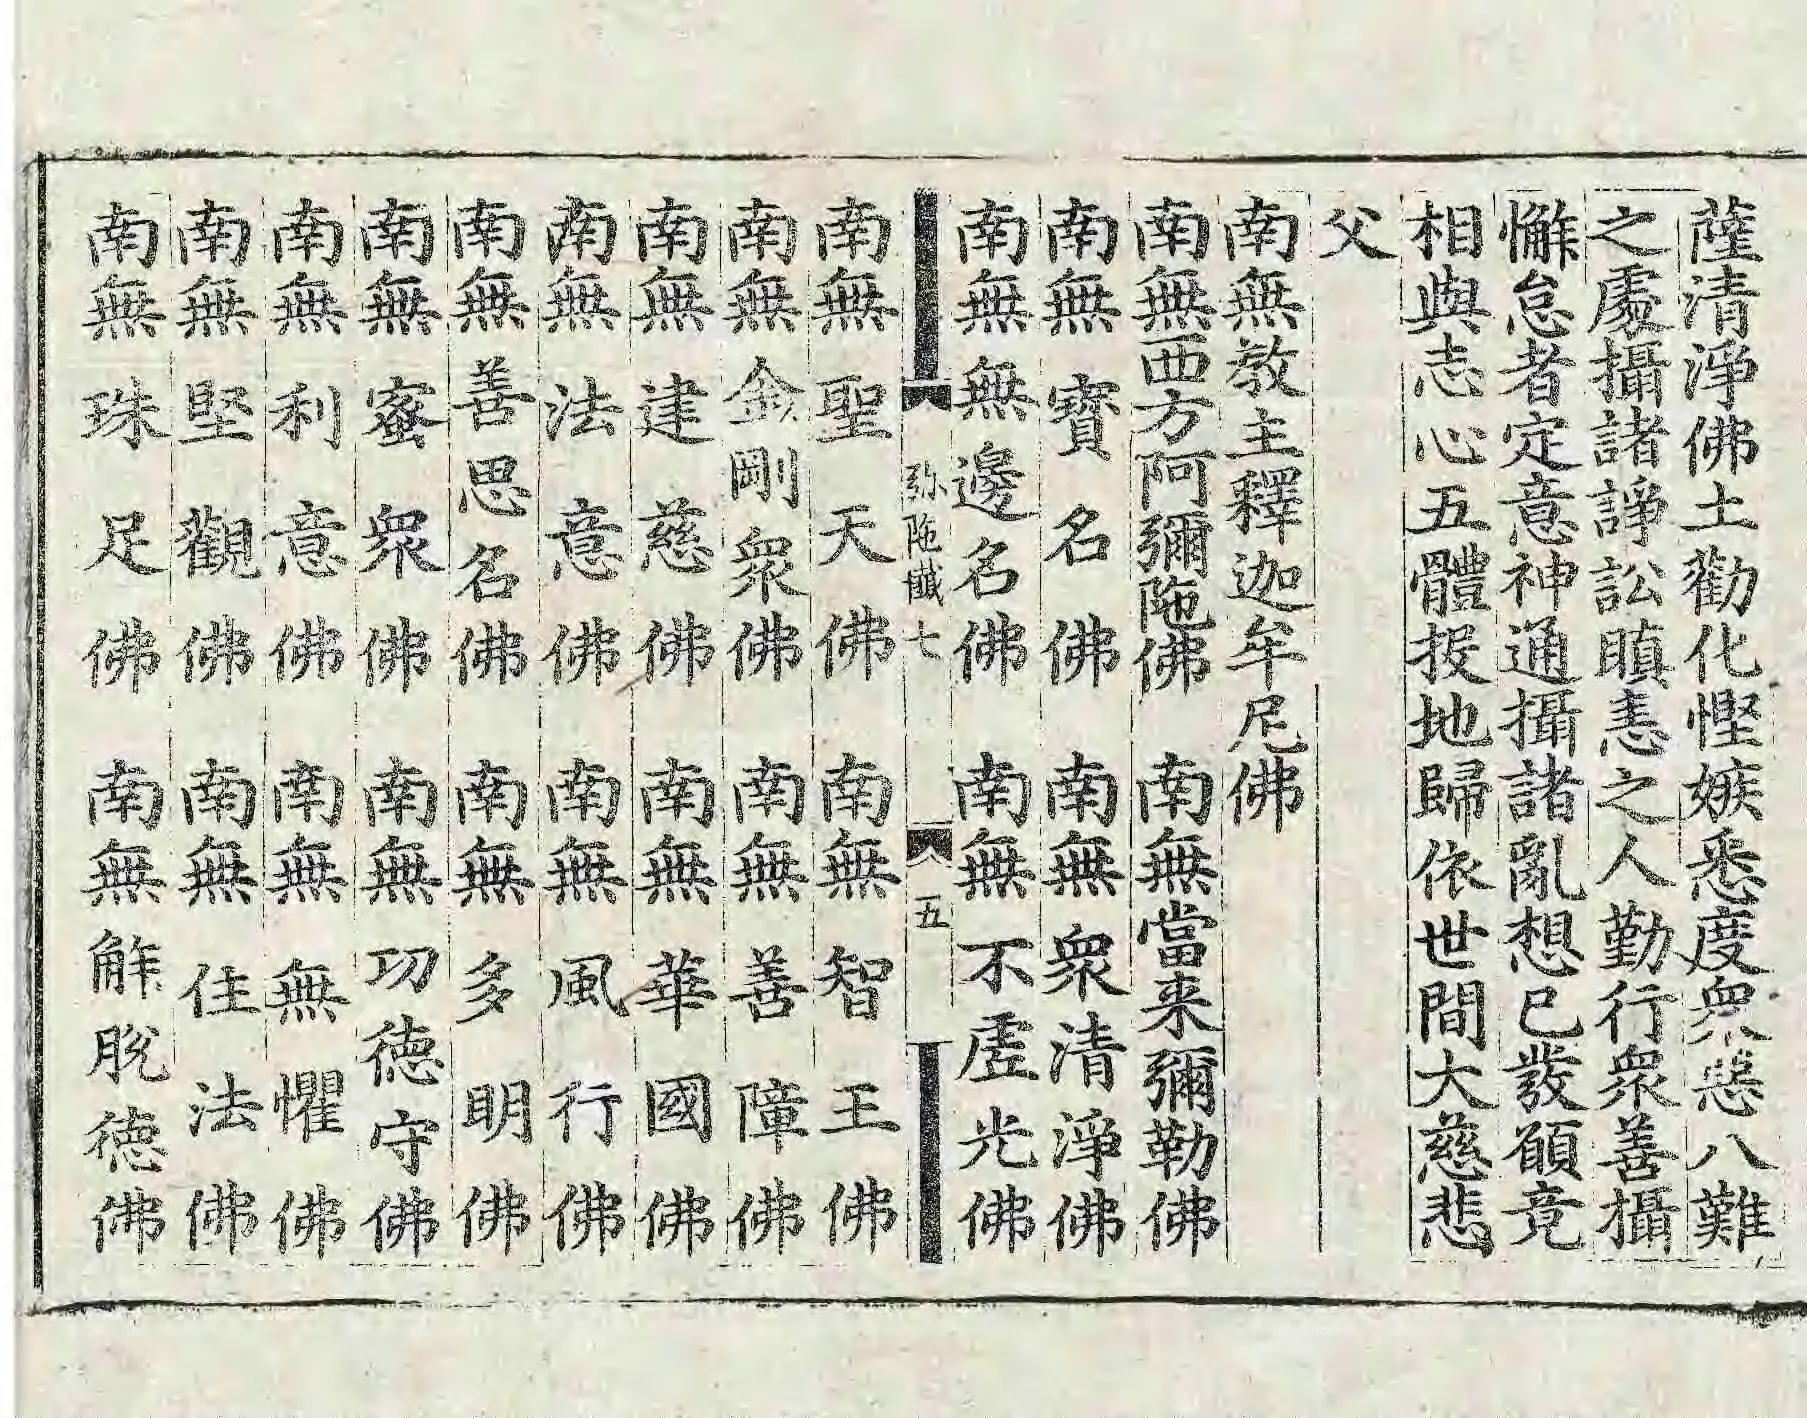 薩清淨佛土勸化慳嫉悉度衆惡八難
之處攝諸諍訟瞋恚之人勤行衆善攝
懈怠者定意神通攝諸亂想已發願竟
相與志心五體投地歸依世間大慈悲
父
南無教主釋迦牟尼佛
南無西方阿彌陁佛　南無當来彌勒佛
南無寶名佛　南無衆清淨佛
南無無邊名佛　南無不虚光佛
弥陁懺七　五
南無聖天佛　南無智王佛
南無金剛衆佛　南無善障佛
南無建慈佛　南無華國佛
南無法意佛　南無風行佛
南無善思名佛　南無多明佛
南無蜜衆佛　南無功德守佛
南無利意佛　南無無懼佛
南無堅觀佛　南無住法佛
南無珠足佛　南無解脫德佛